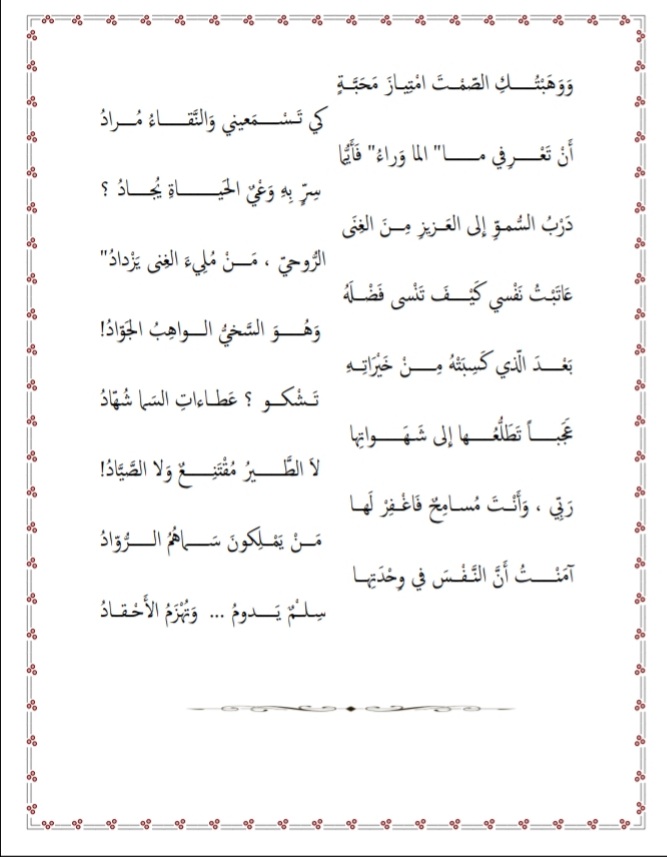 وَوَهَبْتُـــكِ الصَّمْـتَ امْتِيـازَ مَحَبَّـةٍ
كي تَسْــمَعيني وَالنَّقــاءُ مُــرادُ
أَنْ تَعْــرِفي مــا" الما وَراءُ" فَأَيُّما
سِرٍّ بِهِ وَعْيُ الحَيــــاةِ يُجــادُ ؟
دَرْبُ السُّموِّ إلى العَـزيزِ مِـنَ الغِنَى
الرُّوحيّ ، مَــنْ مُلِيءَ الغِنى يَزْدادُ"
عَاتَبْتُ نَفْسي كَيْــفَ تَنْسى فَضْـلَهُ
وَهُــوَ السَّخيُّ الــواهِبُ الجَوّادُ!
بَعْــدَ الّذي كَسِبَتْهُ مِــنْ خَيْرَاتِـهِ
تَـشْكـو ؟ عَطـاءاتِ السَما شُهّادُ
عَجَبــاً تَطَلُّعُــها إلى شَـهَــواتِها
لاَ الطَّــيرُ مُقْتَنِــعٌ وَلا الصَّيَّادُ!
رَبّي ، وَأَنْـتَ مُسـامِحٌ فَاغْـفِرْ لَهـا
مَـنْ يَمْـلِكونَ سَــماهُمُ الــرُّوّادُ
آمَنْــتُ أَنَّ النَّـفْـسَ في وِحْدَتِهـا
سِلـْمٌ يَــدومُ ... وَتُهْزَمُ الأَحْقـادُ